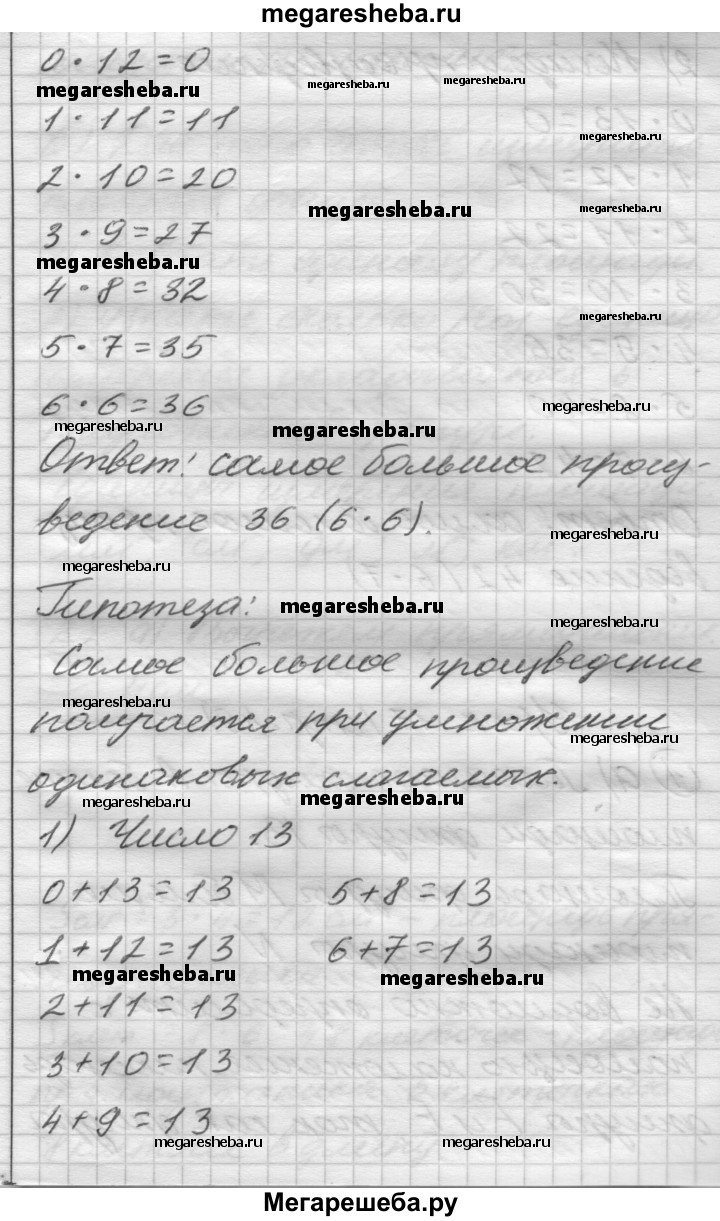 megaresheba.ru
0 · 12 = 0
megaresheba.ru megaresheba.ru megaresheba.ru
1 · 11 = 11
megaresheba.ru
2 · 10 = 20
megaresheba.ru
3 · 9 = 27
megaresheba.ru
4 · 8 = 32
megaresheba.ru
5 · 7 = 35
6 · 6 = 36
megaresheba.ru megaresheba.ru megaresheba.ru
Ответ: самое большое произ-
ведение 36 (6 · 6).
megaresheba.ru
megaresheba.ru
Гипотеза:
megaresheba.ru
megaresheba.ru
Самое большое произведение
megaresheba.ru
получается при умножении
megaresheba.ru
одинаковых слагаемых.
megaresheba.ru megaresheba.ru
1) Число 13
0 + 13 = 13 5 + 8 = 13
1 + 12 = 13 6 + 7 = 13
megaresheba.ru megaresheba.ru
2 + 11 = 13
3 + 10 = 13
4 + 9 = 13
megaresheba.ru megaresheba.ru
Мегарешеба.ру